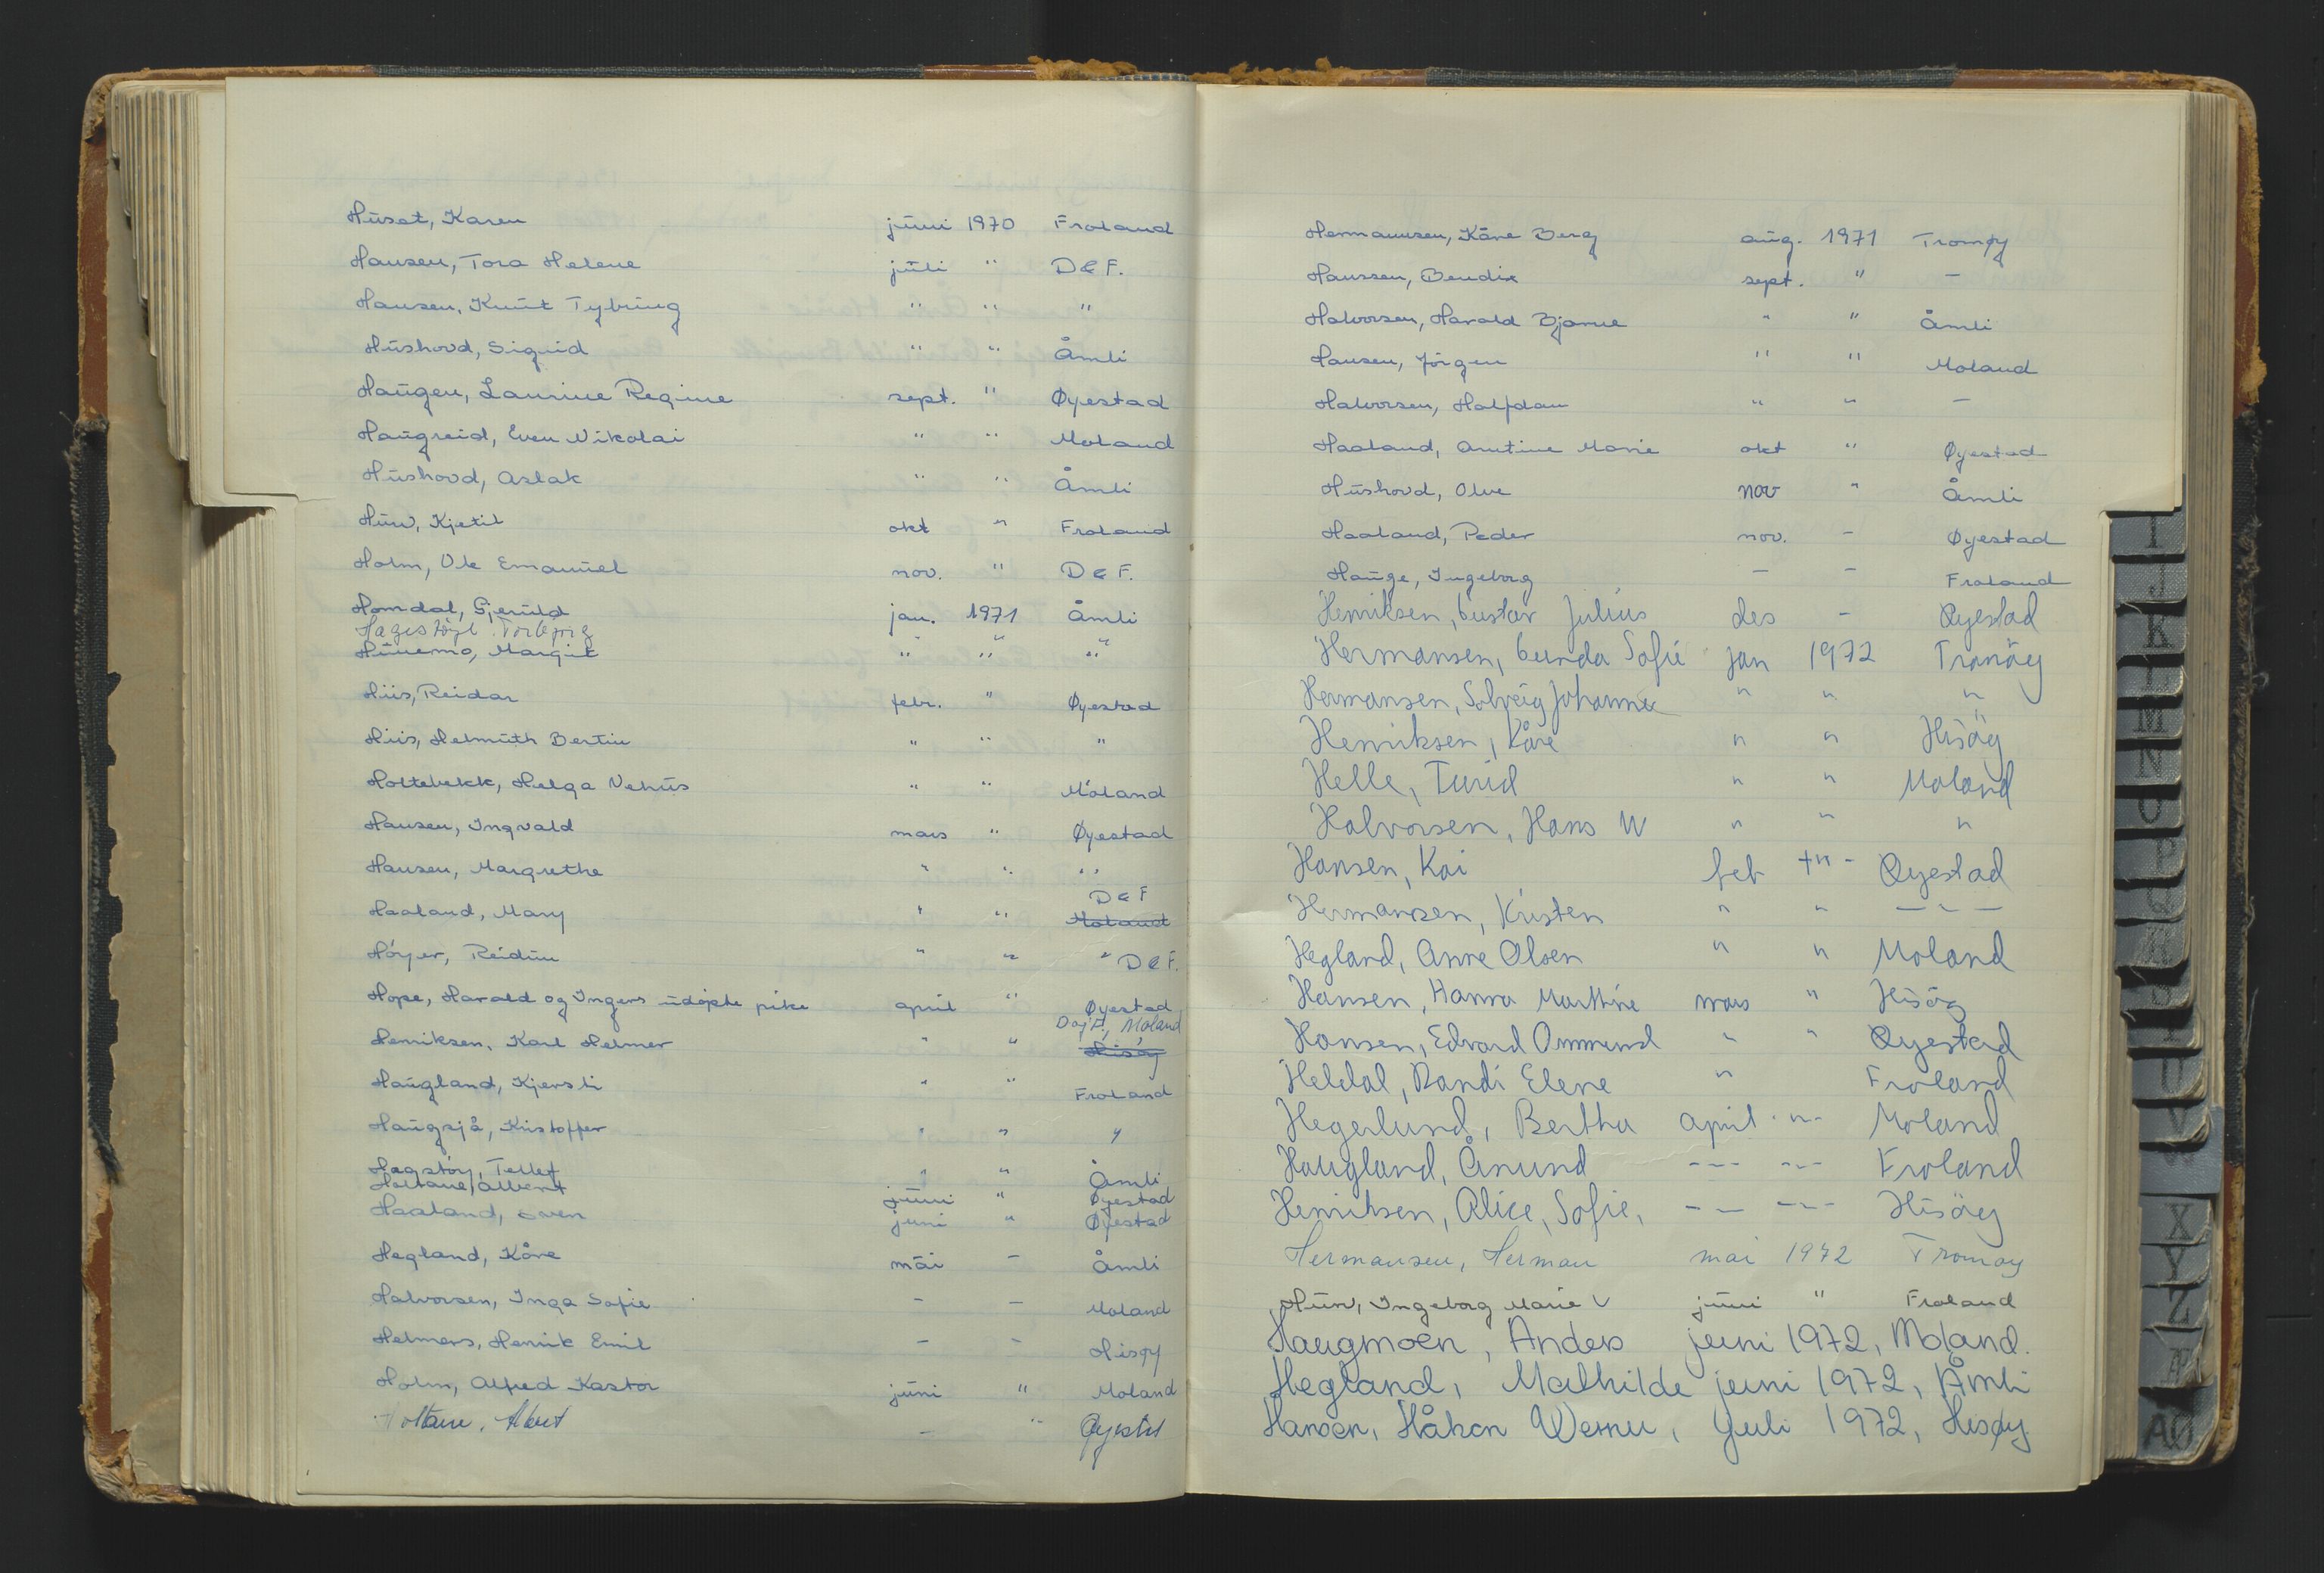 Huset, Karen juni 1970 Froland
Hansen, Tora Helene juli " D & F.
Hansen, Knut Tybring " " "
Hushovd, Sigrid " " Åmli
Haugen, Laurine Regine sept. " Øyestad
Haugreid, Even Nikolai " " Moland
Hushovd, Aslak " " Åmli
Huv, Kjetil okt " Froland
Holm, Ole Emanuel nov. " D & F.
Homdal, Gjeruld jan. 1971 Åmli
Hagestøyl. Torbjørg " "
Hünemo, Margit " " "
Hiis, Reidar febr. " Øyestad
Hiis, Helmuth Bertin " " "
Holtebekk, Helga Nehus " " Moland
Hansen, Ingvald mars " Øyestad
Hansen, Margrethe " " "
D & F
Haaland, Mary " " Moland
Höyer, Reidun " " " D & F.
Hope, Harald og Ingers udøpte pike april " Øyestad
D og F., Moland
Henriksen, Karl Helmer " " Hisøy
Haugland, Kjersti " " Froland
Haugsjå, Kristoffer " " "
Hagstøy, Tellef " " Åmli
Holtane, Albert juni " Øyestad
Haaland, Søren juni " Øyestad
Hegland, Kåre mai - Åmli
Halvorsen, Inga Sofie - - Moland
Helmers, Henrik Emil - - Hisøy
Holm, Alfred Kastor juni " Moland
Holtane, Albert - " Øyestad
Hermannsen, Kåre Berg aug. 1971 Tromøy
Hanssen, Bendix sept. " -
Halvorsen, Harald Bjarne " " Åmli
Hansen, Jörgen " " Moland
Halvorsen, Halfdan " " -
Haaland, Anntine Marie okt " Øyestad
Hushovd, Olve nov " Åmli
Haaland, Peder nov. - Øyestad
Hauge, Ingeborg - - Froland
Henriksen, Gustav Julius des - Øyestad
Hermansen, Gunda Sofie jan 1972 Tromöy
Hermansen, Solveig Johanne " " "
Henriksen, Kåre " " Hisöy
Helle, Turid " " Moland
Halvorsen, Hans W " " "
Hansen, Kai feb -"- Øyestad
Hermansen, Kristen " " - " -
Hegland, Anne Olsen " " Moland
Hansen, Hanna Marthine mars " Hisöy
Hansen, Edvard Ommund " " Øyestad
Heldal, Randi Elene " Froland
Hegerlund, Bertha april -"- Moland
Haugland, Ånund -"- -"- Froland
Henriksen, Alice, Sofie, -"- -"- Hisöy
Hermansen, Herman mai 1972 Tromøy
Huv, Ingeborg Marie V juni " Froland
Haugmoen, Anders juni 1972, Moland.
Hegland, Mathilde juni 1972, Åmli
Hansen, Håkon Werner, Juli 1972, Hisøy
I
J
K
L
M
N
O
P
Q
R
S
T
U
V
W
X
Y
Z
Æ
AØ